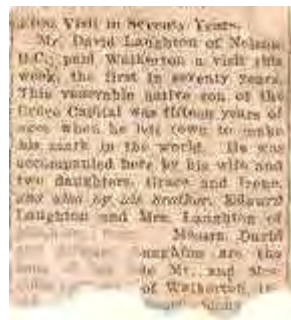 Visit in Seventy Years.
Mr. David Laughton of Nelson,
B.C., paid Walkerton a visit this
week, the first in seventy years.
This venerable native son of the
Bruce Capital was fifteen years of
when he left town to make
his mark in the world. He was
accompanied here by his wife and
two daughters, Grace and Irene,
and also by his brother, Edward
Laughton and Mrs. Laughton of
Messrs. David
Laughton are the
Mr. and Mrs.
of Walkerton,